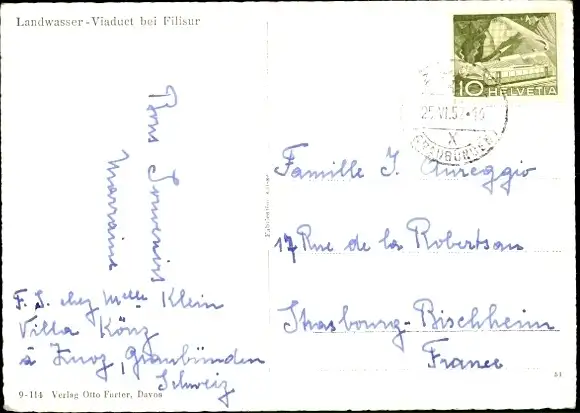 Landwasser-Viaduct bei Filisur
10 HELVETIA
25.VI.5
X
(GRAUBÜNDEN)
Bons Souvenirs
Marraine
F. S. chez Melle Klein
Villa Könz
à Zuoz, Graubünden
Schweiz
9-114 Verlag Otto Furter, Davos
Famille J. Aureggio
17 Rue de la Robertsau
Strasbourg-Bischheim
France